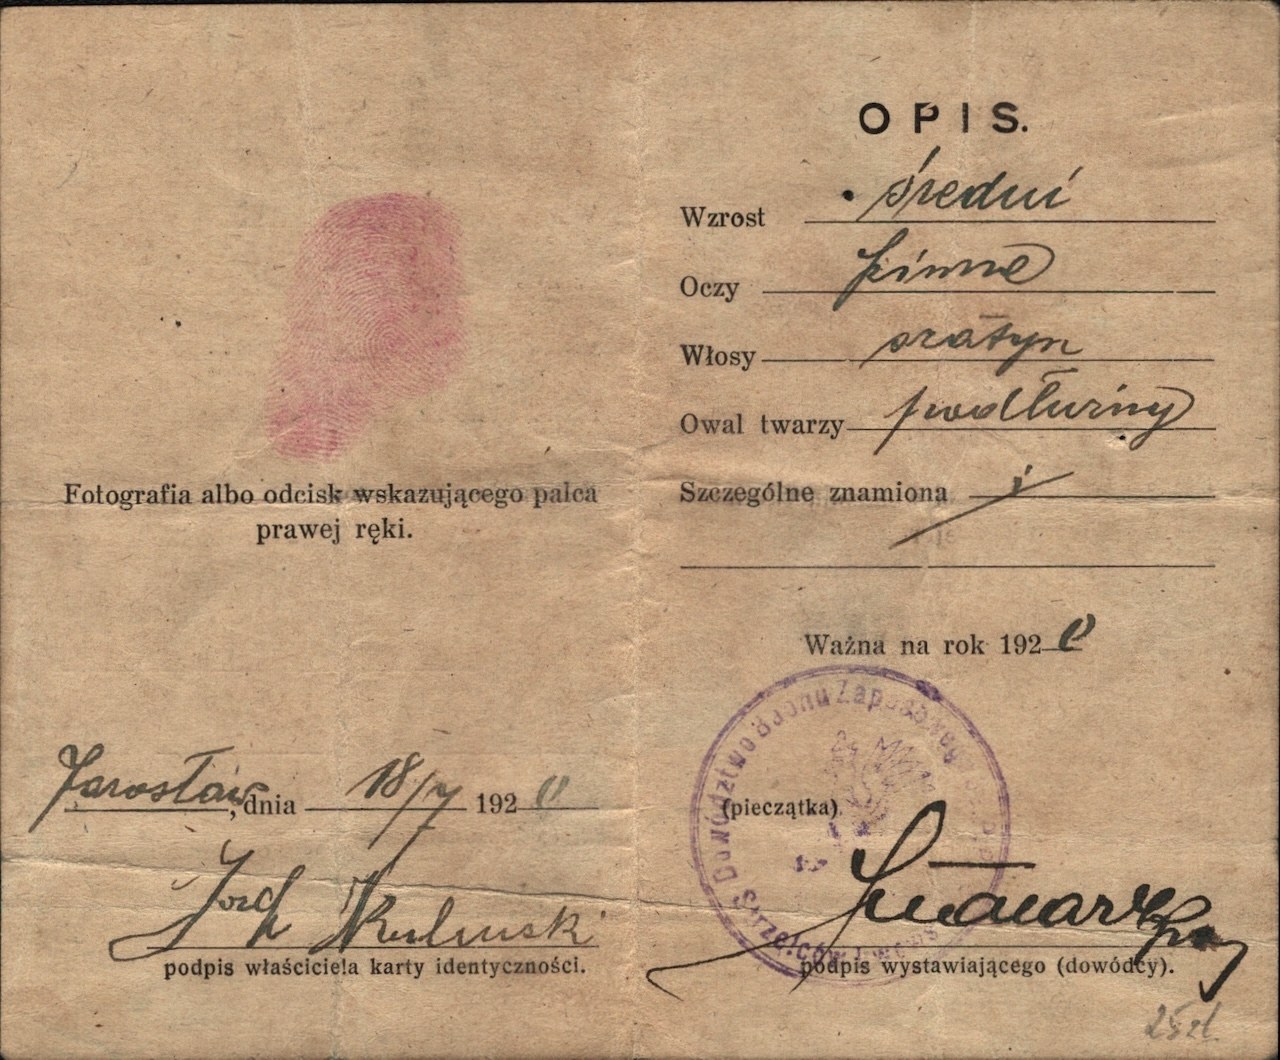 Fotografia albo odcisk wskazującego palca
prawej ręki.
Jarosław, dnia 18/7 1920
Józef
podpis właściciela karty identyczności.
OPIS.
Wzrost średni
Oczy piwne
Włosy szatyn
Owal twarzy podłużny
Szczególne znamiona
Ważna na rok 1920
(pieczątka)
Dowództwo Baonu Zapasowego
Strzelców
podpis wystawiającego (dowódcy).
25 zł